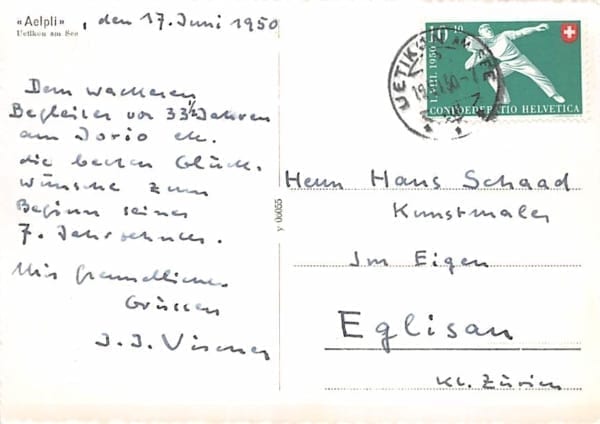 «Aelpli», den 17. Juni 1950
Uetikon am See
Dem wackeren
Begleiter vor 33½ Jahren
am Jorio etc.
die besten Glück-
wünsche zum
Beginn seines
7. Jahrzehntes.
Mit freundlichen
Grüssen
J. J. Vischer
y 06055
10 10
1. VIII. 1950
CONFOEDERATIO HELVETICA
UETIKON AM SEE
Herrn Hans Schaad
Kunstmaler
Im Eigen
Eglisau
Kt. Zürich